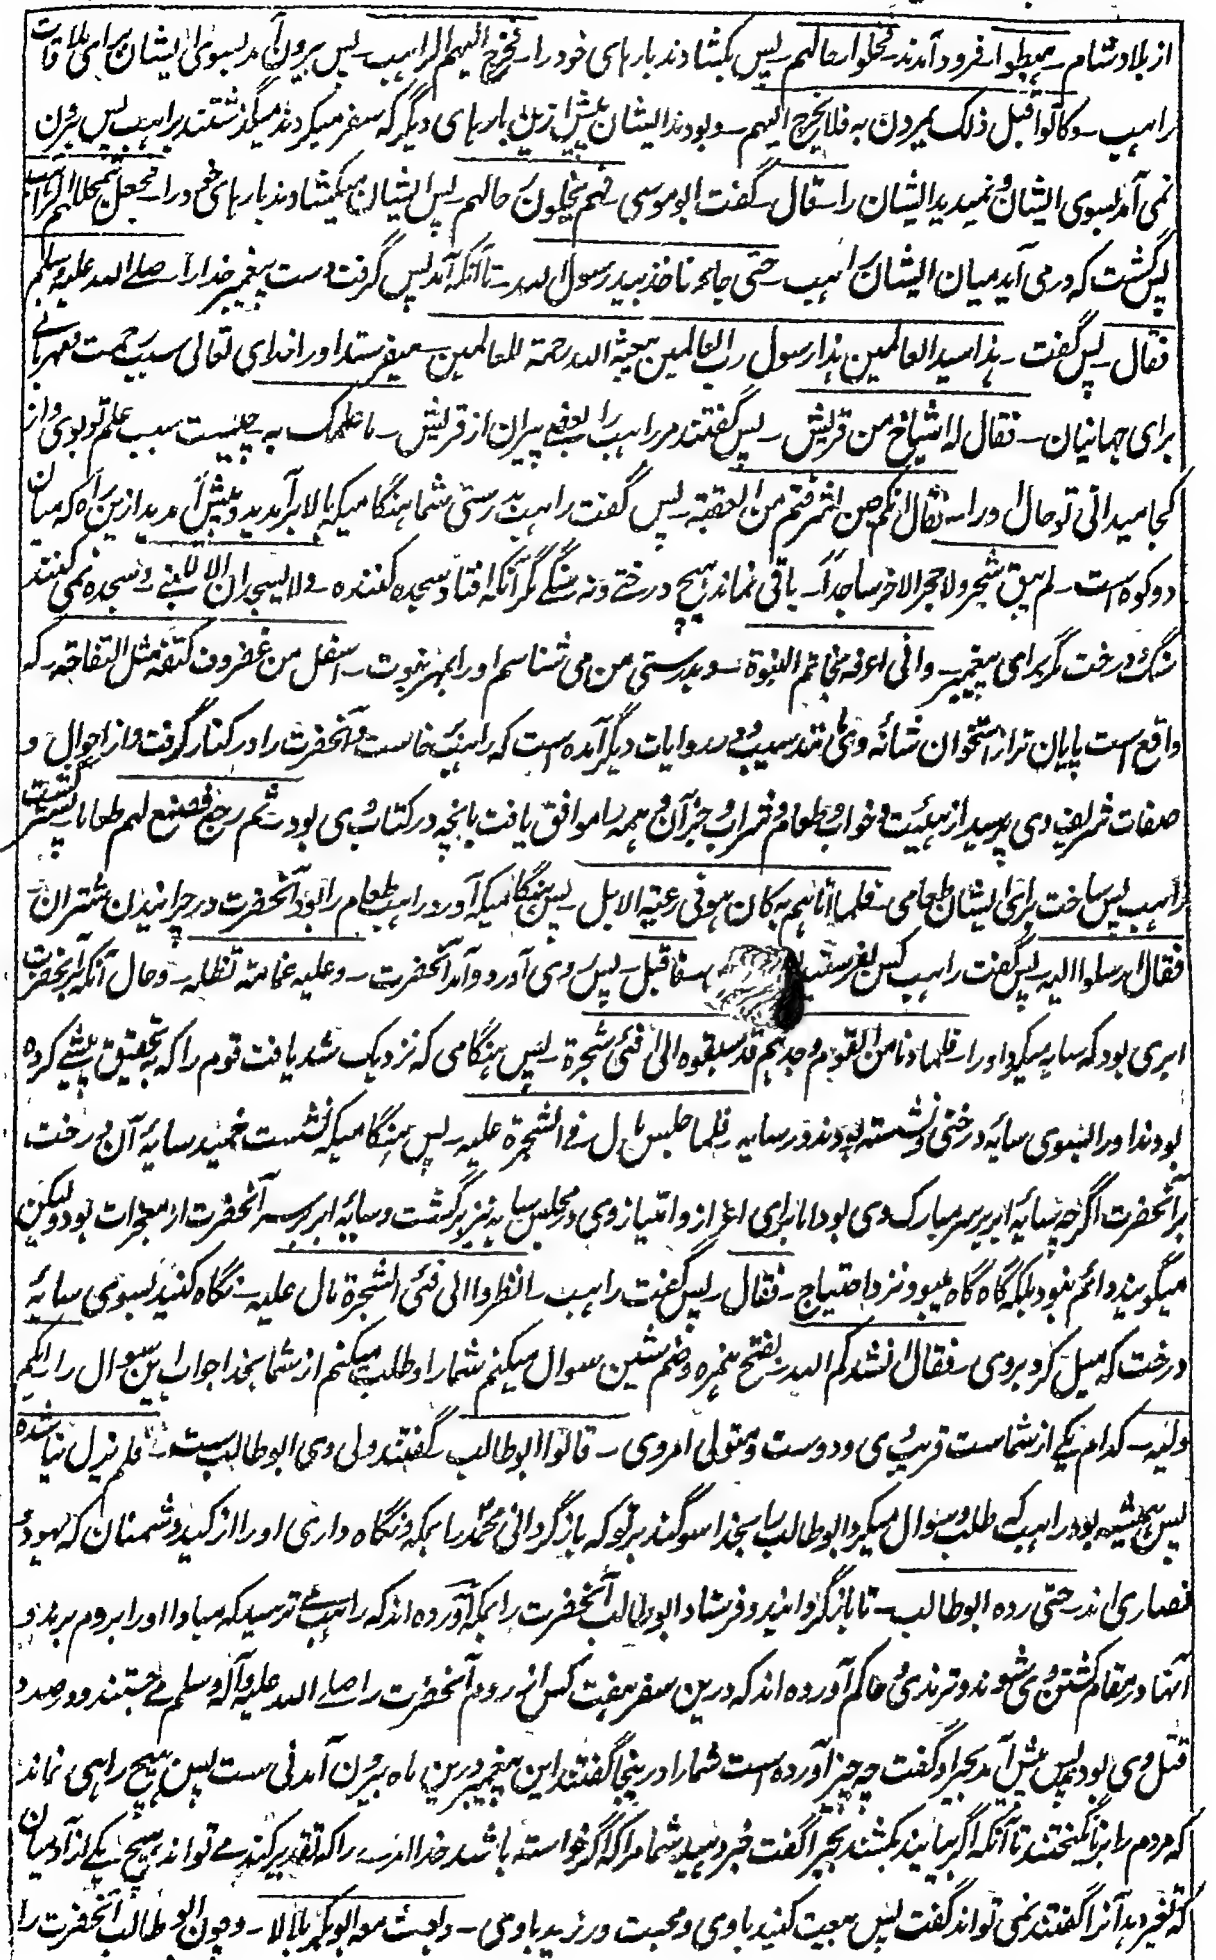 از بلاد شام ـ هبطوا ـ فرود آمدند ـ فحلوا رحالهم ـ پس بکشادند بارهای خود را ـ فخرج الیهم الراهب ـ پس بیرون آمد بسوی ایشان برای ملاقات
راهب ـ وکانوا قبل ذلک یمرون به فلا یخرج الیهم ـ و بودند ایشان پیش ازین بارهای دیگر که سفر میکردند میگذشتند براهب پس بیرون
نمی آمد بسوی ایشان و نمیدید ایشان را ـ قال ـ گفت ابوموسی ـ فهم یحلون رحالهم ـ پس ایشان میکشادند بارهای خود را ـ فجعل یتخللهم الراهب
پس گشت که درمی آید میان ایشان راهب ـ حتی جاء فاخذ بید رسول الله ـ تا آنکه آمد پس گرفت دست پیغمبر خدا را ـ صلے الله علیه وسلم
فقال ـ پس گفت ـ هذا سید العالمین هذا رسول رب العالمین یبعثه الله رحمة للعالمین ـ میفرستد او را خدای تعالی بسبب رحمت و مهربانی
برای جهانیان ـ فقال له اشیاخ من قریش ـ پس گفتند مر راهب را بعضے پیران از قریش ـ ما علمک ـ چیست سبب علم تو بوی و از
کجا میدانی تو حال او را ـ فقال انکم حین اشرفتم من العقبة ـ پس گفت راهب بدرستی شما هنگامیکه بالا برآمدید و پیش آمدید ازین راه که میان
دو کوه است ـ لم یبق شجر ولا حجر الا خر ساجدا ـ باقی نماند هیچ درختے و نه سنگے مگر آنکه افتاد سجده کننده ـ ولا یسجدان الا لنبی ـ و سجده نمی کنند
سنگ و درخت مگر برای پیغمبر ـ وانی اعرفه بخاتم النبوة ـ و بدرستی من می شناسم او را بمهر نبوت ـ اسفل من غضروف کتفه مثل التفاحة ـ که
واقع است پایان تر از استخوان شانه وی مانند سیب و در روایات دیگر آمده است که راهب برخاست و آنحضرت را در کنار گرفت و از احوال و
صفات شریف وی پرسید از هیئت و خواب و طعام و شراب و جز آن و همه را موافق یافت بآنچه در کتاب وی بود ـ ثم رجع فصنع لهم طعاما ـ پستر گشت
راهب پس ساخت برای ایشان طعامی ـ فلما اتاهم به کان هو فی رعیة الابل ـ پس هنگامیکه آورد راهب طعام را بود آنحضرت در چرانیدن شتران ـ
فقال ارسلوا الیه ـ پس گفت راهب کس بفرستید ـ فاقبل ـ پس روی آورد و آمد آنحضرت ـ وعلیه غمامة تظله ـ و حال آنکه بر آنحضرت
ابری بود که سایه میکرد او را ـ فلما دنا من القوم وجدهم قد سبقوه الی فئ شجرة ـ پس هنگامی که نزدیک شد یافت قوم را که بتحقیق پیشی کرده
بودند او را بسوی سایه درختی و نشسته بودند در سایه ـ فلما جلس مال فئ الشجرة علیه ـ پس هنگامیکه نشست خمید سایه آن درخت
بر آنحضرت اگرچه سایه ابر بر سر مبارک وی بود اما برای اعزاز و امتیاز وی در مجلس سایه نیز برگشت و سایه ابر بر سر آنحضرت از معجزات بود و لیکن
میگویند دائم نبود بلکه گاه گاه میبود نزد احتیاج ـ فقال ـ پس گفت راهب ـ انظروا الی فئ الشجرة مال علیه ـ نگاه کنید بسوی سایه
درخت که میل کرد بروی ـ فقال انشدکم الله ـ بفتح همزه و ضم شین سوال میکنم شما را و طلب میکنم از شما بخدا جواب این سوال را ـ ایکم
ولیه ـ کدام یکے از شماست قریب وی و دوست و متولی امر وی ـ قالوا ابوطالب ـ گفتند ولی وی ابوطالب است ـ فلم یزل یناشده
پس همیشه بود راهب که طلب و سوال میکرد ابوطالب را بخدا سوگند بر تو که بازگردانی محمد را بمکه و نگاه داری او را از کید دشمنان که یهود و
نصاری اند ـ حتی رده ابوطالب ـ تا بازگردانید و فرستاد ابوطالب آنحضرت را بمکه آورده اند که راهب مے ترسید که مبادا او را بروم برند و
آنها در مقام کشتن وی شوند و ترمذی و حاکم آورده اند که درین سفر هفت کس از روم آنحضرت را صلے الله علیه وآله وسلم مے جستند و در صدد
قتل وی بودند پس پیش آمد بحیرا و گفت چه چیز آورده است شما را در ینجا گفتند این پیغمبر درین ماه بیرون آمدنی ست پس هیچ راهی نماند
که مردم را برنگیختند تا آنکه اگر بیابند بکشند بحیرا گفت خبر دهید شما مرا که اگر خواسته باشد خدا امرے را که تقدیر کند مے تواند هیچ یکے از آدمیان
که تغیر دهد آنرا گفتند نمی تواند گفت پس بیعت کنید باوی و محبت ورزید باوی ـ وبعث معه ابوبکر بلالا ـ و چون ابوطالب آنحضرت را